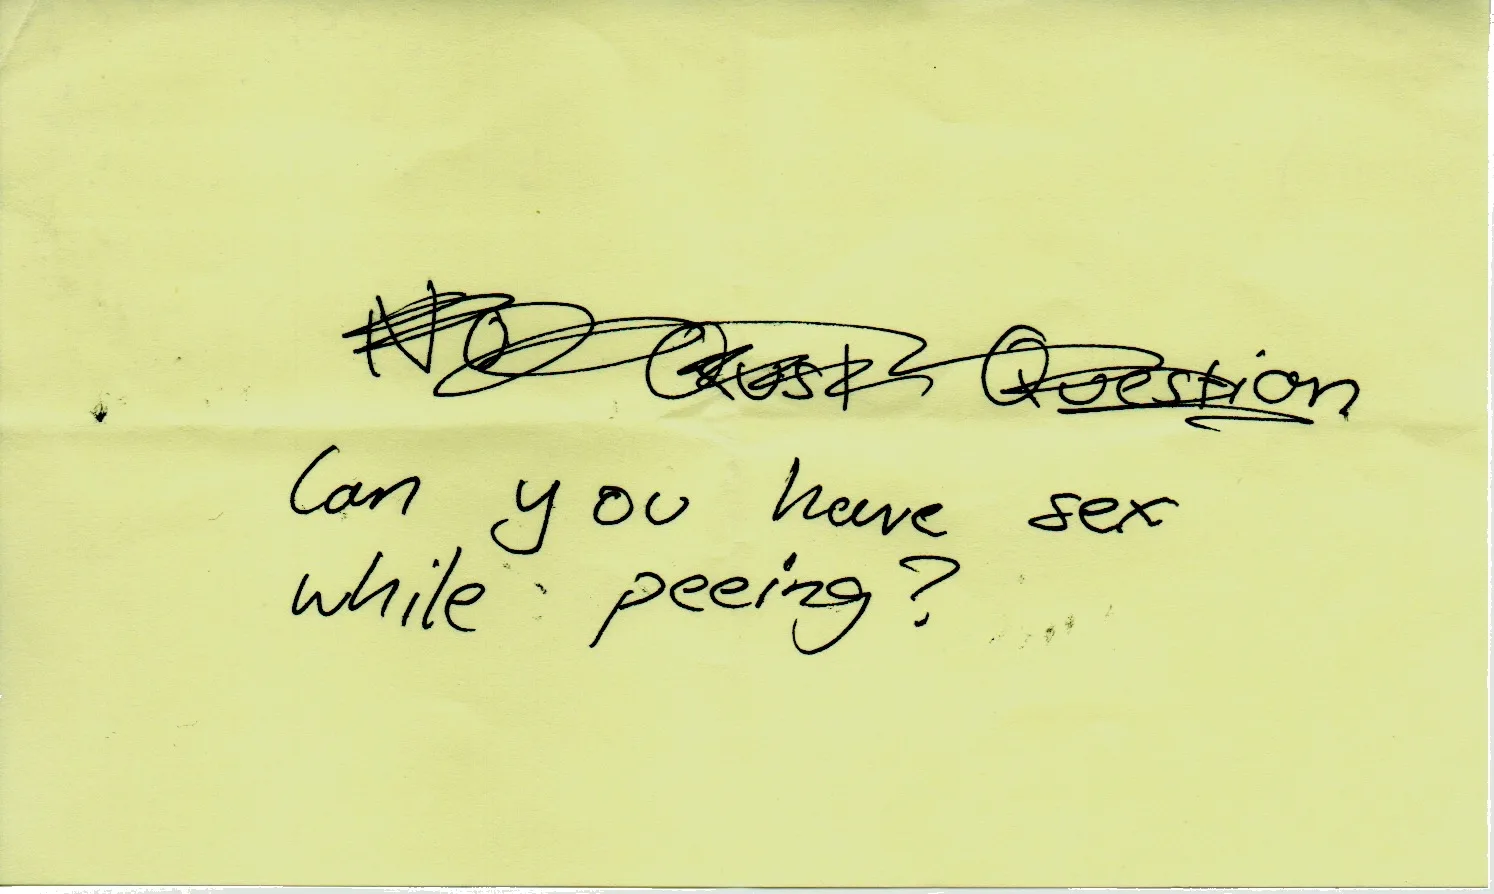 No Quest Question
Can you have sex
while peeing?